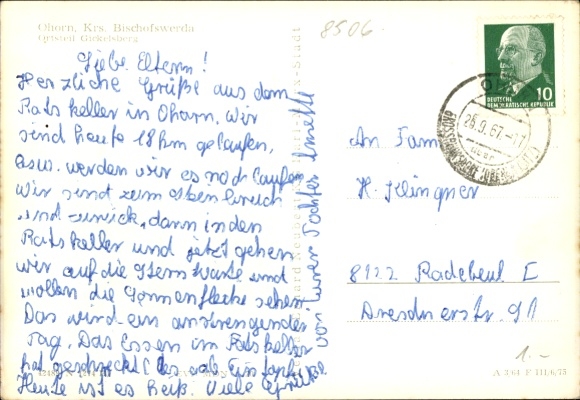 Ohorn, Krs. Bischofswerda
Ortsteil Gickelsberg
8506.
Liebe Eltern!
Herzliche Grüße aus dem
Ratskeller in Ohorn. Wir
sind heute 18 km gelaufen,
bzw. werden wir es noch laufen.
Wir sind zum Steinbruch
und zurück, dann in den
Ratskeller und jetzt gehen
wir auf die Sternwarte und
wollen die Sonnenflecke sehen.
Das wird ein anstrengender
Tag. Das Essen im Ratskeller
hat geschmeckt (es gab Eintopf)
Heute ist es heiß. Viele Grüße
von eurer Tochter
DEUTSCHE
DEMOKRATISCHE REPUBLIK
10
26.9.67.-17
An Fam.
H. Klingner
8122 Radebeul I
Dresdner str. 91
1.-
A 3/64 F III/6/75